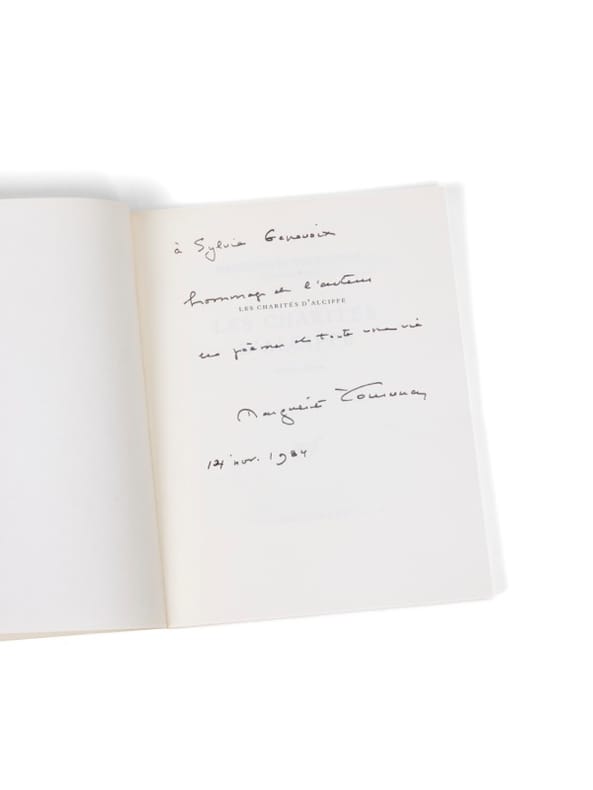 à Sylvie Genevoix
hommage de l'auteur
LES CHARITÉS D'ALCIPPE
LES CHARITÉS
ces poèmes de toute une vie
Marguerite Yourcenar
14 nov. 1984